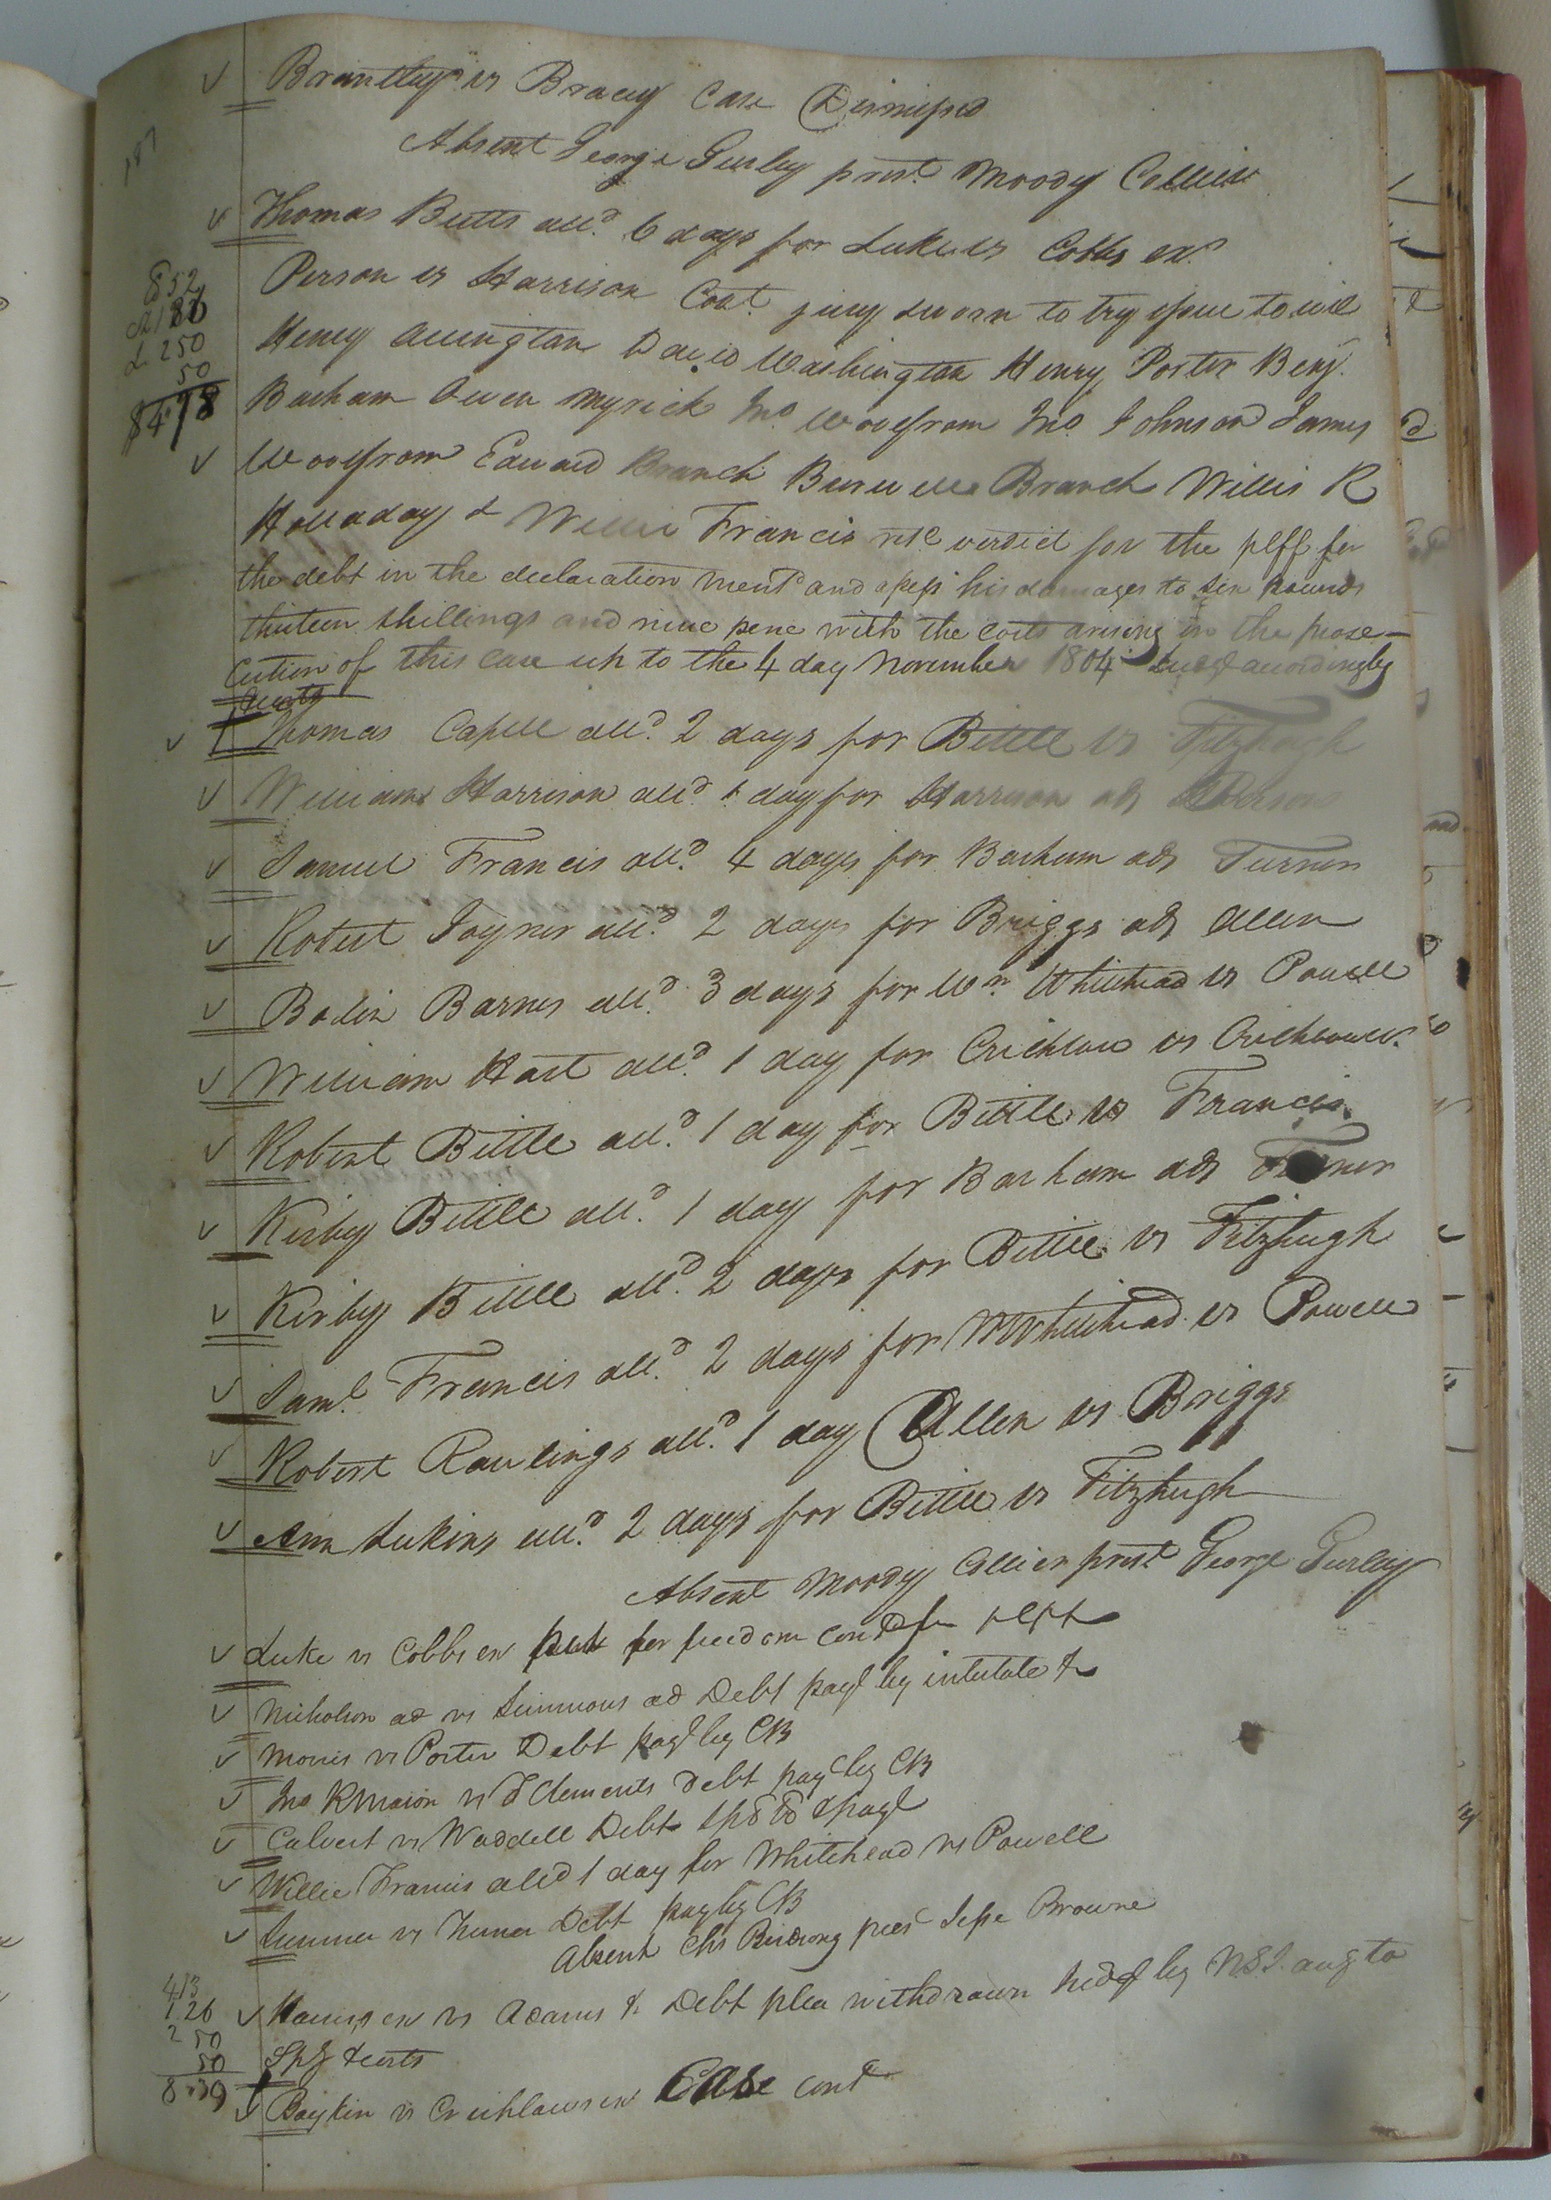 Brantley vs Bracey Case Dismissed
Absent George Gurley prest. Moody Collier
Thomas Butts alld. 6 days for Luke vs Cobbs exr.
852
Person vs Harrison Cont. jury sworn to try issue to wit
250
Henry Arrington David Washington Henry Porter Benj.
50
Barham Owen Myrick Jno. Woolfrom Jno. Johnson James
Woolfrom Edward Branch Burwell Branch Willis R
Holladay & Willie Francis retd verdict for the plff for
the debt in the declaration ment'd and assess his damages to six pounds
thirteen shillings and nine penc with the costs arising in the prose-
cution of this case up to the 4 day November 1804 & judgt accordingly
Thomas Capell alld. 2 days for Bittle vs Fitzhugh
William Harrison alld. 1 day for Harrison ads Person
Samuel Francis alld. 4 days for Barham ads Turner
Robert Joyner alld. 2 days for Briggs ads Allen
Barnes alld. 3 days for Wm. Whitehead vs Powell
William Hart alld. 1 day for Crichlow vs Crichlow
Robert Bittle alld. 1 day for Bittle vs Francis
Kirby Bittle alld. 1 day for Barham ads Turner
Kirby Bittle alld. 2 days for Bittle vs Fitzhugh
Saml. Francis alld. 2 days for Whitehead vs Powell
Robert Rawlings alld. 1 day Allen vs Briggs
Ann Lukins alld. 2 days for Bittle vs Fitzhugh
Absent Moody Collier prest George Gurley
Luke vs Cobbs ex for freedom contd for plff
Nicholson ad vs Simmons ad Debt
Morris vs Porter Debt
Jno vs Clements debt
Calvert vs Waddell Debt
Willie Francis alld 1 day for Whitehead vs Powell
vs Turner Debt
Absent Chs Birdsong prest Jesse Browne
126
ex vs Adams & Debt plea withdrawn
50
& costs
Boykin vs Crichlows ex Case contd